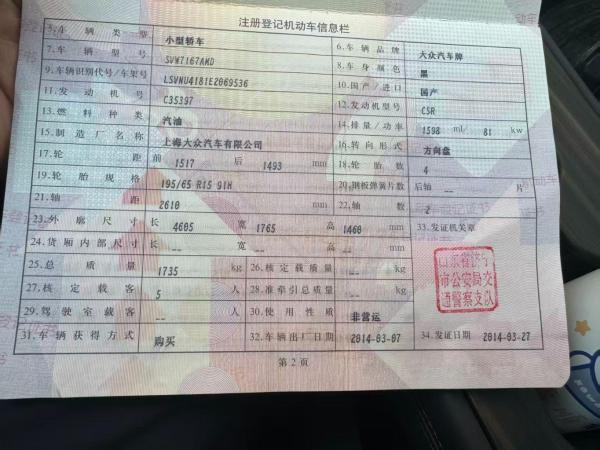 注册登记机动车信息栏
5.车辆类型 小型轿车 6.车辆品牌 大众汽车牌
7.车辆型号 SVW7167AMD 8.车身颜色 黑
9.车辆识别代号/车架号 LSVNU4181E2069536 10.国产/进口 国产
11.发动机号 C35397 12.发动机型号 CSR
13.燃料种类 汽油 14.排量/功率 1598 ml/ 81 kw
15.制造厂名称 上海大众汽车有限公司 16.转向形式 方向盘
17.轮距 前 1517 后 1493 mm 18.轮胎数 4
19.轮胎规格 195/65 R15 91H 20.钢板弹簧片数 后轴 -- 片
21.轴距 2610 mm 22.轴数 2
23.外廓尺寸 长 4605 宽 1765 高 1460 mm 33.发证机关章
24.货厢内部尺寸 长 -- 宽 -- 高 -- mm
25.总质量 1735 kg 26.核定载质量 -- kg
27.核定载客 5 人 28.准牵引总质量 -- kg
29.驾驶室载客 -- 人 30.使用性质 非营运
31.车辆获得方式 购买 32.车辆出厂日期 2014-03-07 34.发证日期 2014-03-27
山东省济宁
市公安局交
通警察支队
第 2 页